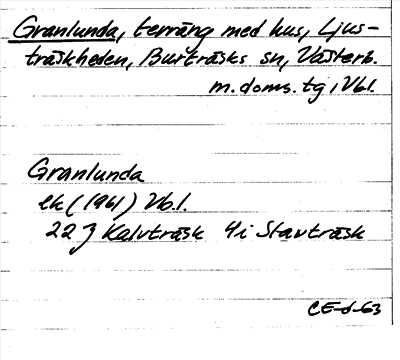 Granlunda, terräng med hus, Ljus-
träskheden, Burträsks sn, Västerb.
m. doms. tg, Vbl.
Granlunda
ek (1961) Vb.l.
22 J Kalvträsk 4i Stavträsk
CE-d-63